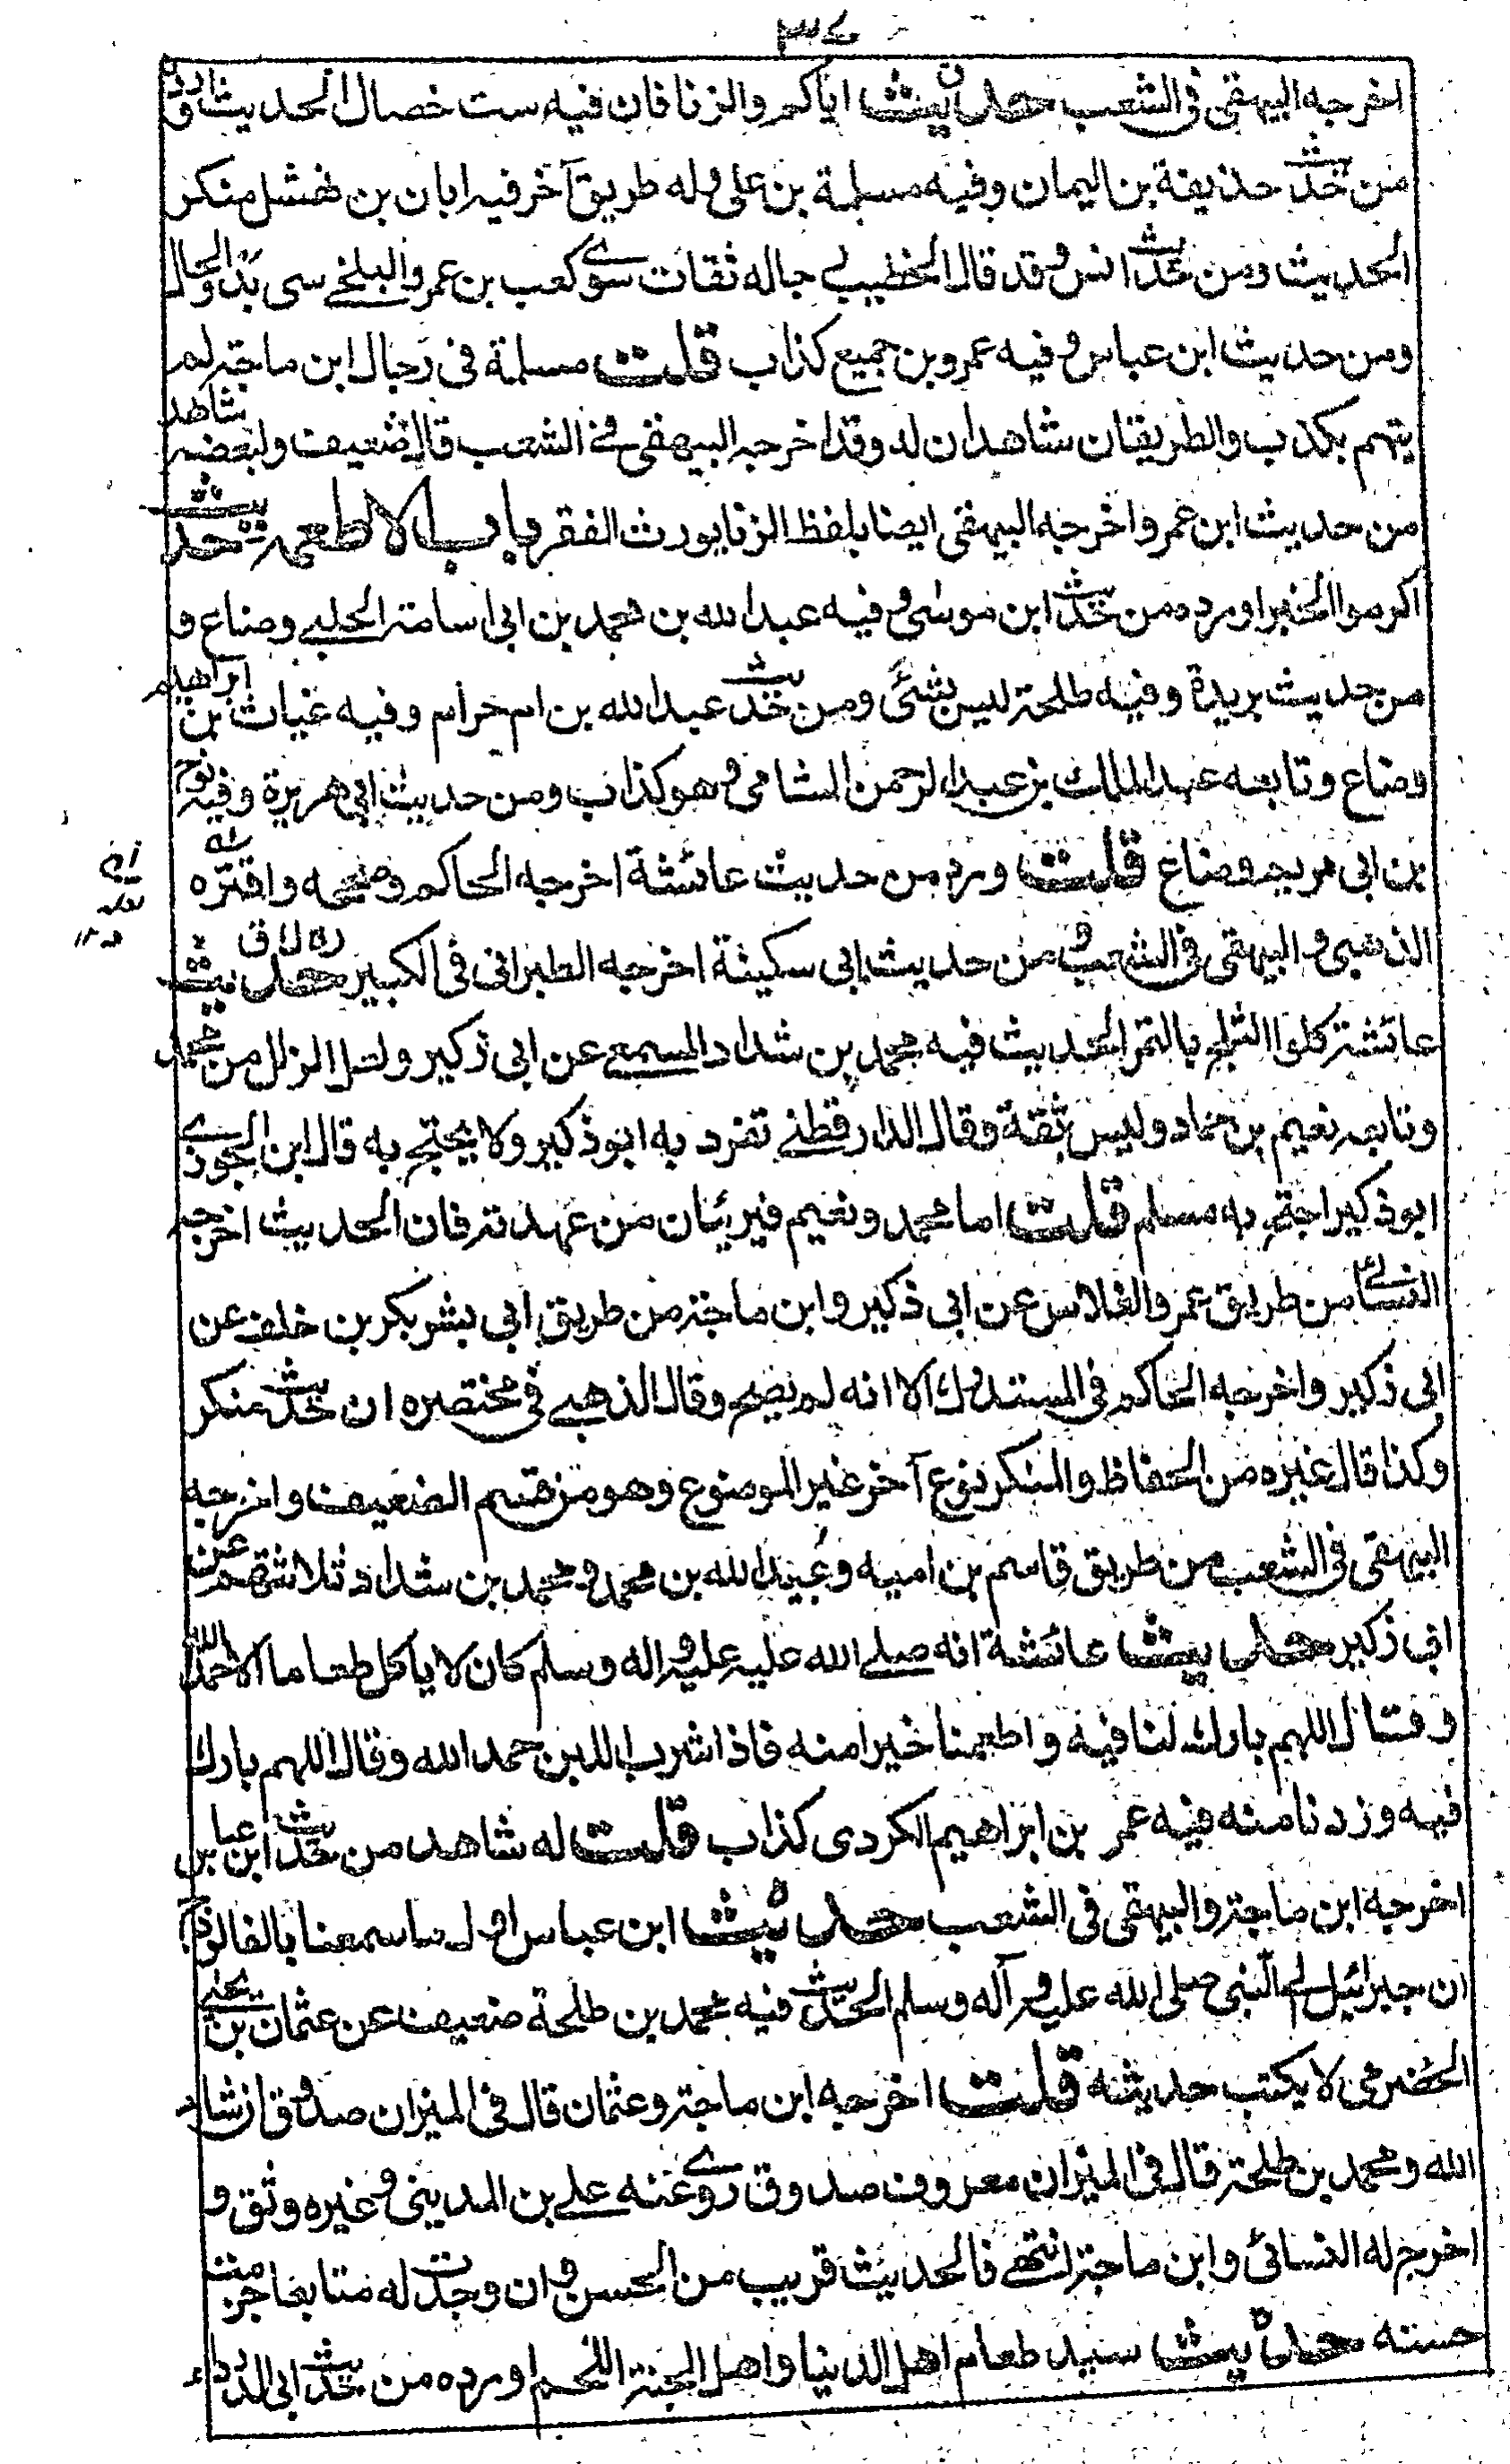 ٣٧
اخرجه البيهقى فى الشعب حديث اياكم والزنا فان فيه ست خصال الحديث واورده
من حديث حذيفة بن اليمان وفيه مسلمة بن على وله طريق آخر فيه ابان بن نهشل منكر
الحديث ومن حديث انس وقد قال الخطيب رجاله ثقات سوى كعب بن عمرو البلخے سى بد الحال
ومن حديث ابن عباس وفيه عمرو بن جميع كذاب قلت مسلمة فى رجال ابن ماجة لم
يتهم بكذب والطريقان شاهدان له وقد اخرجه البيهقى فے الشعب قال ضعيف ولبعضه شاهد
من حديث ابن عمر واخرجه البيهقى ايضا بلفظ الزنا يورث الفقر باب الاطعمة حديث
اكرموا الخبز اورده من حديث ابن موسى وفيه عبد الله بن محمد بن ابى اسامة الحلبے وضاع و
من حديث بريدة وفيه طلحة ليس بشئ ومن حديث عبد الله بن ام حرام وفيه غياث بن ابراهيم
وضاع وتابعه عبد الملك بن عبد الرحمن الشامى وهو كذاب ومن حديث ابى هريرة وفيه نوح
بن ابى مريم وضاع قلت ورد من حديث عائشة اخرجه الحاكم وصححه واقره
الذهبى والبيهقى فى الشعب ومن حديث ابى سكينة اخرجه الطبرانى فى الكبير حديث
عائشة كلوا البلح بالتمر الحديث فيه محمد بن شداد المسمعے عن ابى زكير ولعل الزلل من محمد
وتابعه نعيم بن حماد وليس بثقة وقال الدارقطنے تفرد به ابو ذكير ولا يحتج به قال ابن الجوزے
ابو ذكير احتج به مسلم قلت اما محمد ونعيم فبريئان من عهدته فان الحديث اخرجه
النسائے من طريق عمرو الفلاس عن ابى ذكير وابن ماجة من طريق ابى بشر بكر بن خلف عن
ابى ذكير واخرجه الحاكم فى المستدرك الا انه لم يصح وقال الذهبے فى مختصره ان حديث منكر
وكذا قال غيره من الحفاظ والمنكر نوع آخر غير الموضوع وهو من قسم الضعيف واخرجه
البيهقى فى الشعب من طريق قاسم بن اميه وعبيد الله بن محمد ومحمد بن شداد ثلاثتهم عن
ابى زكير حديث عائشة انه صلے الله عليه عليه واله وسلم كان لا ياكل طعاما الا حمد الله
وقال اللهم بارك لنا فيه واطعمنا خيرا منه فاذا شرب اللبن حمد الله وقال اللهم بارك
فيه وزدنا منه فيه عمر بن ابراهيم الكردى كذاب قلت له شاهد من حديث ابن عباس
اخرجه ابن ماجة والبيهقى فى الشعب حديث ابن عباس اول ما سمعنا بالفالوذج
ان جبرائيل اتى النبى صلى الله عليه وآله وسلم الحديث فيه محمد بن طلحة ضعيف عن عثمان بن يحيے
الحضرمى لا يكتب حديثه قلت اخرجه ابن ماجة وعثمان قال فى الميزان صدوق ان شاء
الله ومحمد بن طلحة قال فى الميزان معروف صدوق روے عنه علے بن المدينى وغيره وثق و
اخرج له النسائى وابن ماجة انتهے فالحديث قريب من الحسن وان وجدت له متابعا جزمت
حسنه حديث سيد طعام اهل الدنيا واهل الجنة اللحم اورده من حديث ابى الدرداء